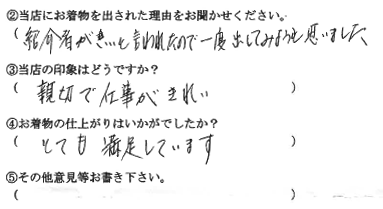 ②当店にお着物を出された理由をお聞かせください。
(紹介者が良いと言われたので一度出してみようと思いました)
③当店の印象はどうですか？
(親切で仕事がきれい)
④お着物の仕上がりはいかがでしたか？
(とても満足しています)
⑤その他意見等お書き下さい。
( )